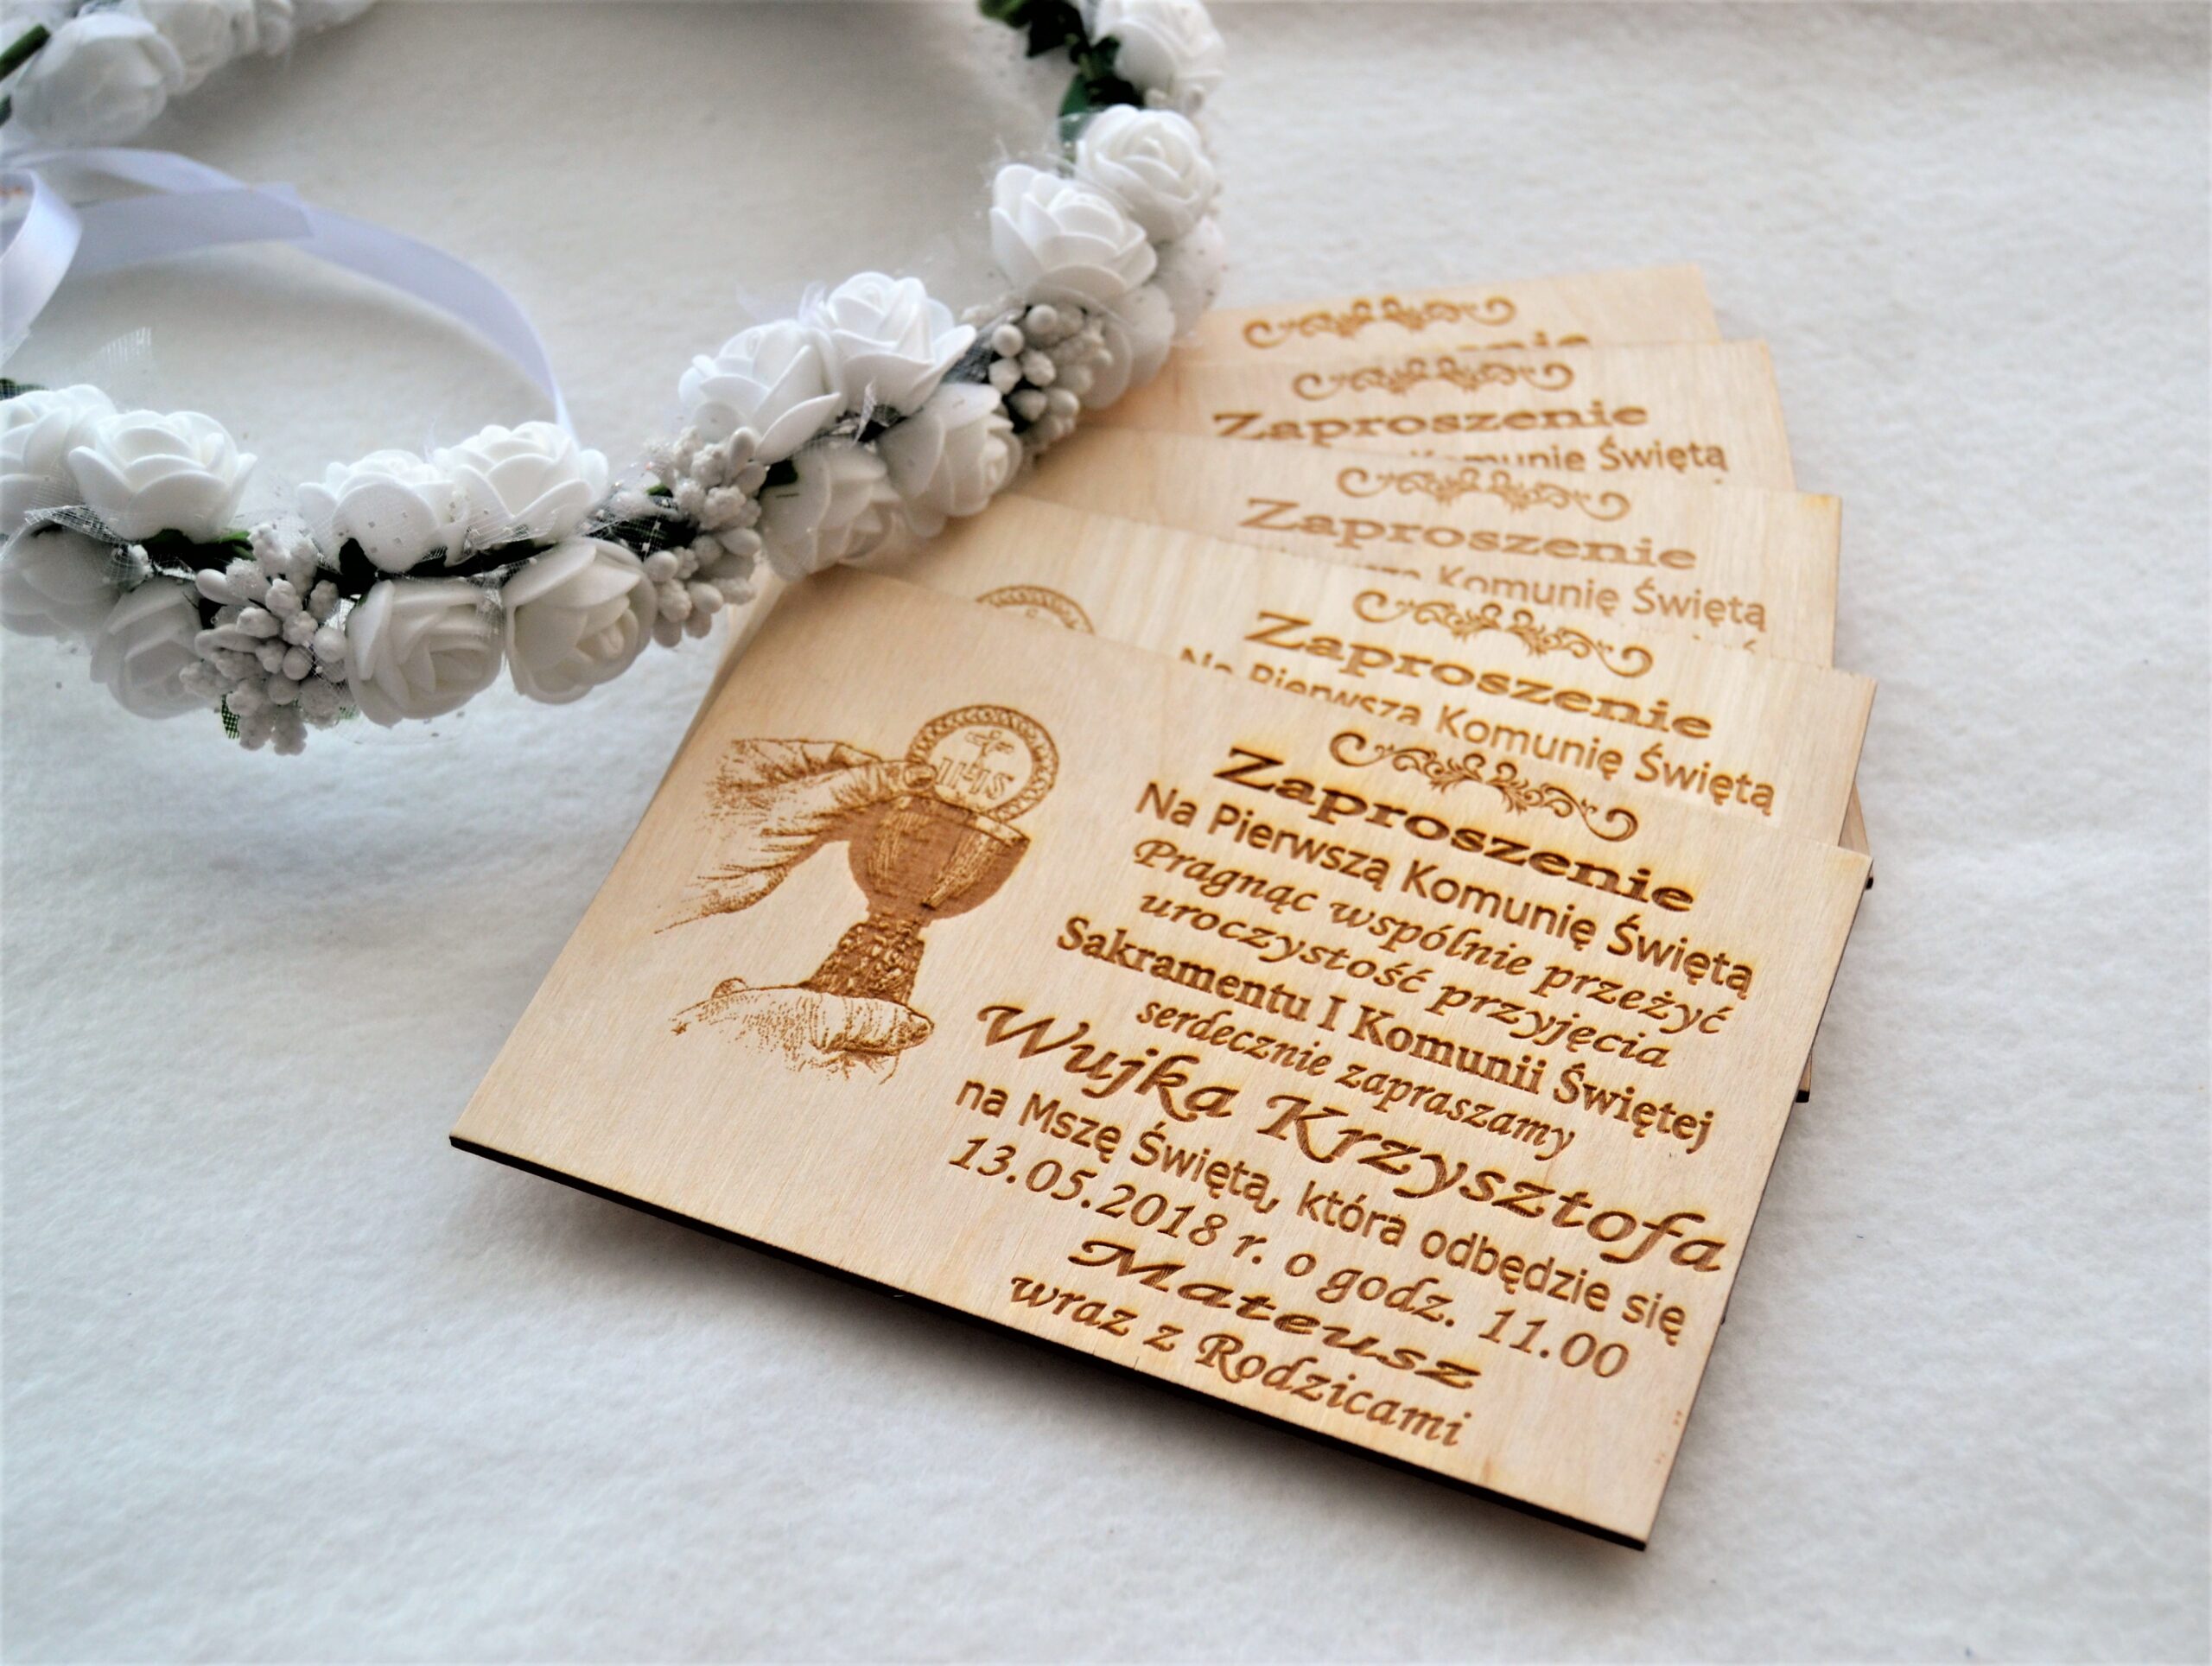 Zaproszenie
Komunię Świętą
Zaproszenie
Komunię Świętą
Zaproszenie
Na Pierwszą Komunię Świętą
IHS
Zaproszenie
Na Pierwszą Komunię Świętą
Pragnąc wspólnie przeżyć
uroczystość przyjęcia
Sakramentu I Komunii Świętej
serdecznie zapraszamy
Wujka Krzysztofa
na Mszę Świętą, która odbędzie się
13.05.2018 r. o godz. 11.00
Mateusz
wraz z Rodzicami